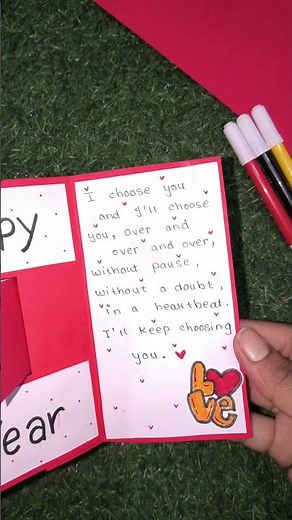 I choose you
and I'll choose
you, over and
over and over,
without pause,
without a doubt,
in a heartbeat.
I'll keep choosing
you.
Love
py
ear